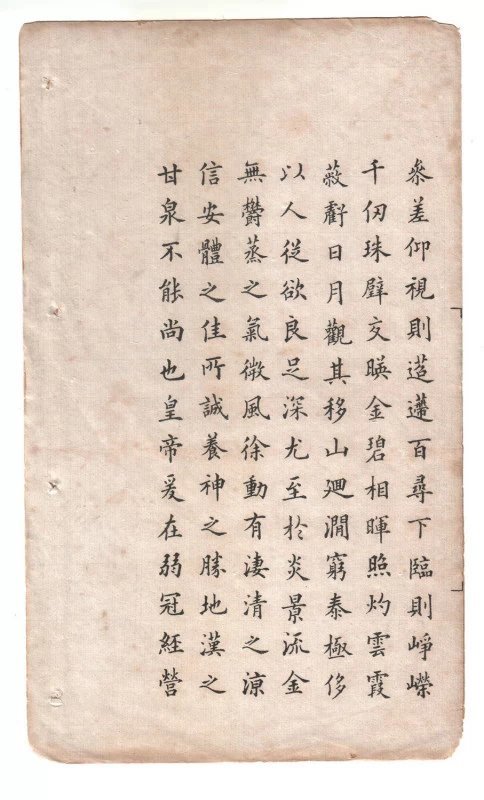 參差仰視則迢遰百尋下臨則崢嶸
千仞珠壁交暎金碧相暉照灼雲霞
蔽虧日月觀其移山迴澗窮泰極侈
以人從欲良足深尤至於炎景流金
無鬱蒸之氣微風徐動有淒清之涼
信安體之佳所誠養神之勝地漢之
甘泉不能尚也皇帝爰在弱冠經營